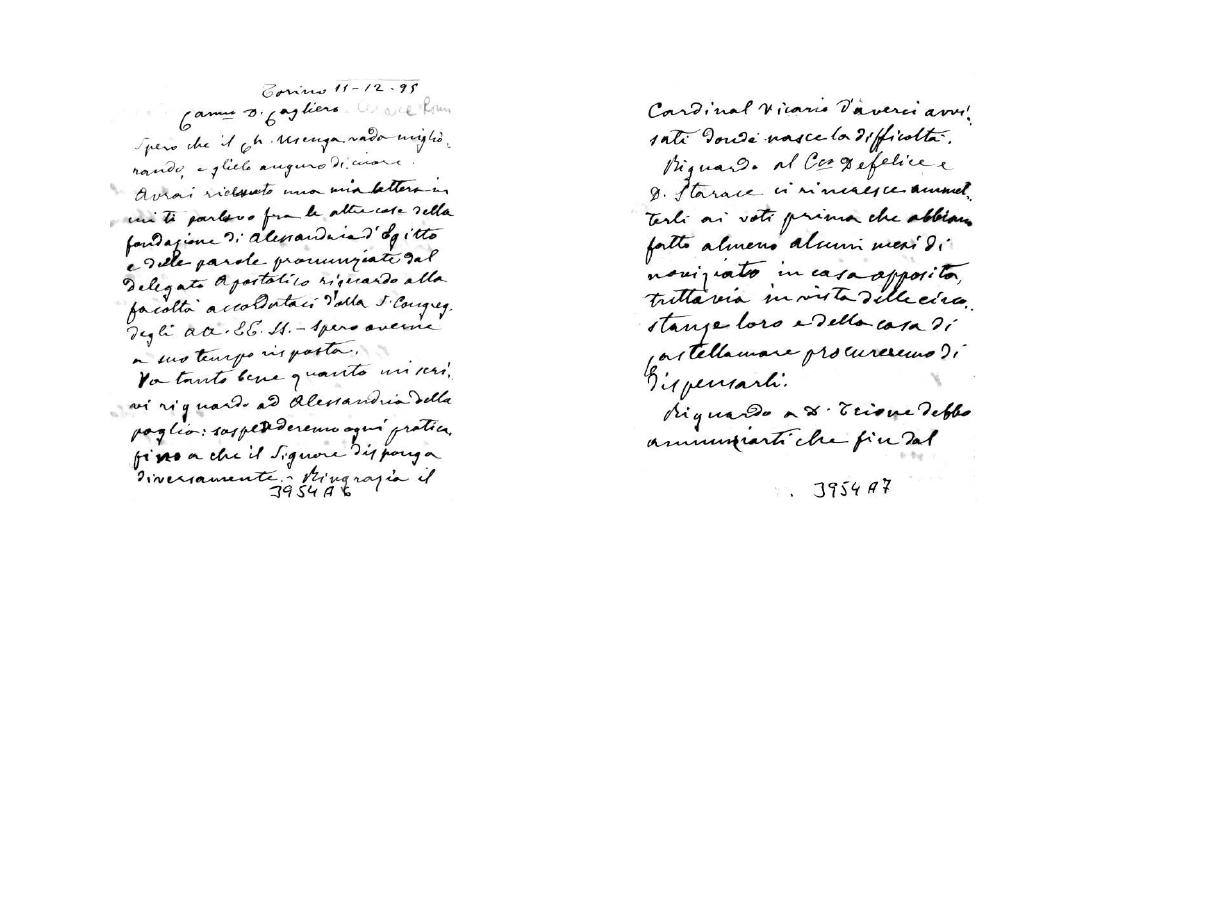 Torino 11-12-95
Carmo D. Cagliero Cesare Roma
Spero che il Ch. Usenga vada miglio-
rando, e glielo auguro di cuore.
Avrai ricevuto una mia lettera in
cui ti parlavo fra le altre cose della
fondazione di Alessandria d'Egitto
e delle parole pronunziate dal
Delegato Apostolico riguardo alla
facoltà accordataci dalla S. Congreg.
degli AA. EE. SS. - Spero averne
a suo tempo risposta.
Va tanto bene quanto mi scri-
vi riguardo ad Alessandria della
paglia: sospenderemo ogni pratica
fino a che il Signore disponga
diversamente. - Ringrazia il
3954 A 6
Cardinal Vicario d'averci avvi-
sati donde nasce la difficoltà.
Riguardo al Ccο Defelice e
D. Starace ci rincresce ammet-
terli ai voti prima che abbiano
fatto almeno alcuni mesi di
noviziato in casa apposita,
tuttavia in vista delle circo-
stanze loro e della casa di
Castellamare procureremo di
dispensarli.
Riguardo a D. Trione debbo
annunziarti che fin dal
3954 A7